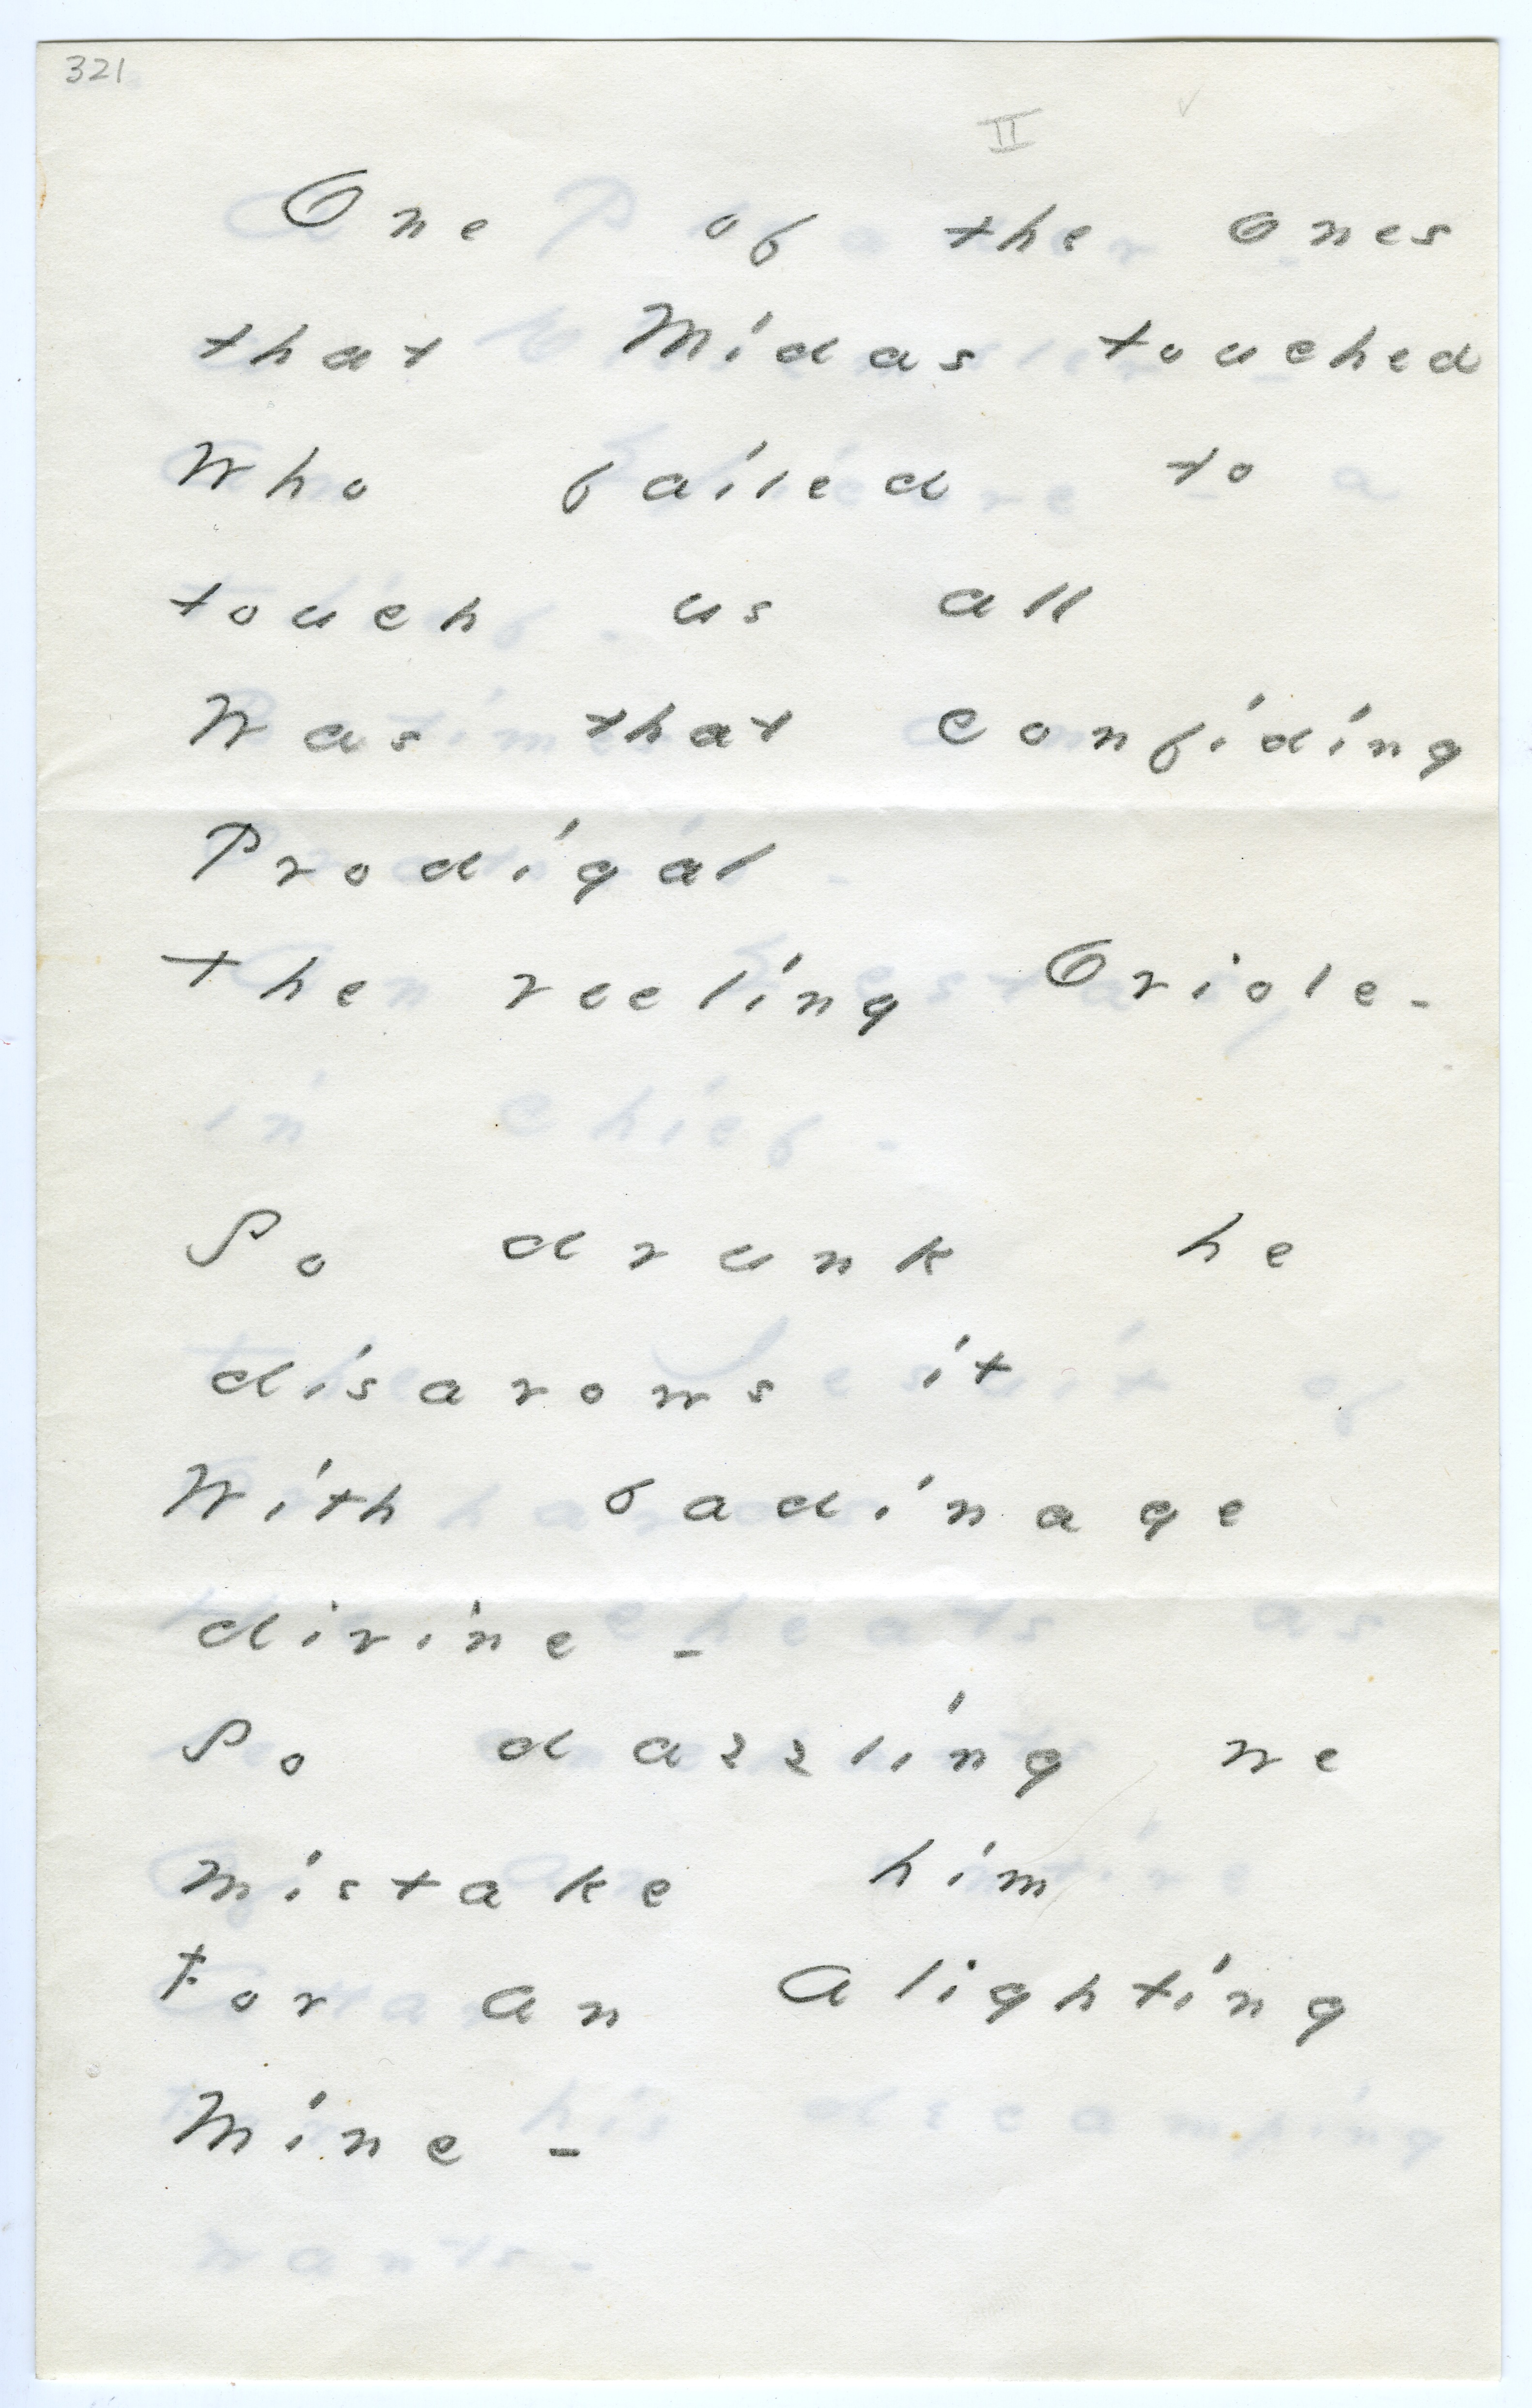 321
II
One of the ones
that Midas touched
Who failed to
touch us all
Was that confiding
Prodigal
The reeling Oriole -
So drunk he
disavows it
With badinage
divine -
So dazzling we
mistake him
For an alighting
Mine -